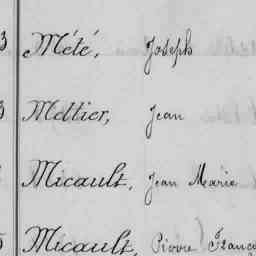 3 Mété, Joseph
3 Mettier, Jean
Micault, Jean Marie
Micault, Pierre